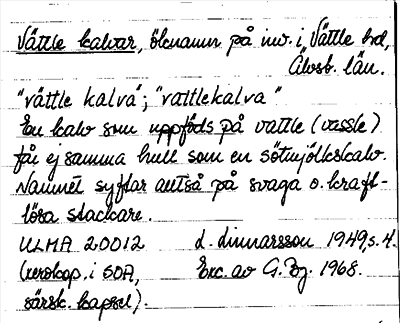 Vättle kalvar, öknamn på inv. i Vättle hd,
Älvsb. län.
"vättle kalva"; "vattlekalva"
En kalv som uppföds på vattle (vassle)
får ej samma hull som en sötmjölkskalv.
Namnet syftar alltså på svaga o. kraft-
lösa stackare.
ULMA 20012 L. Linnarsson 1949, s. 4.
(xerokop. i SOA, Exc. av G. Bg. 1968.
särsk. kapsel).